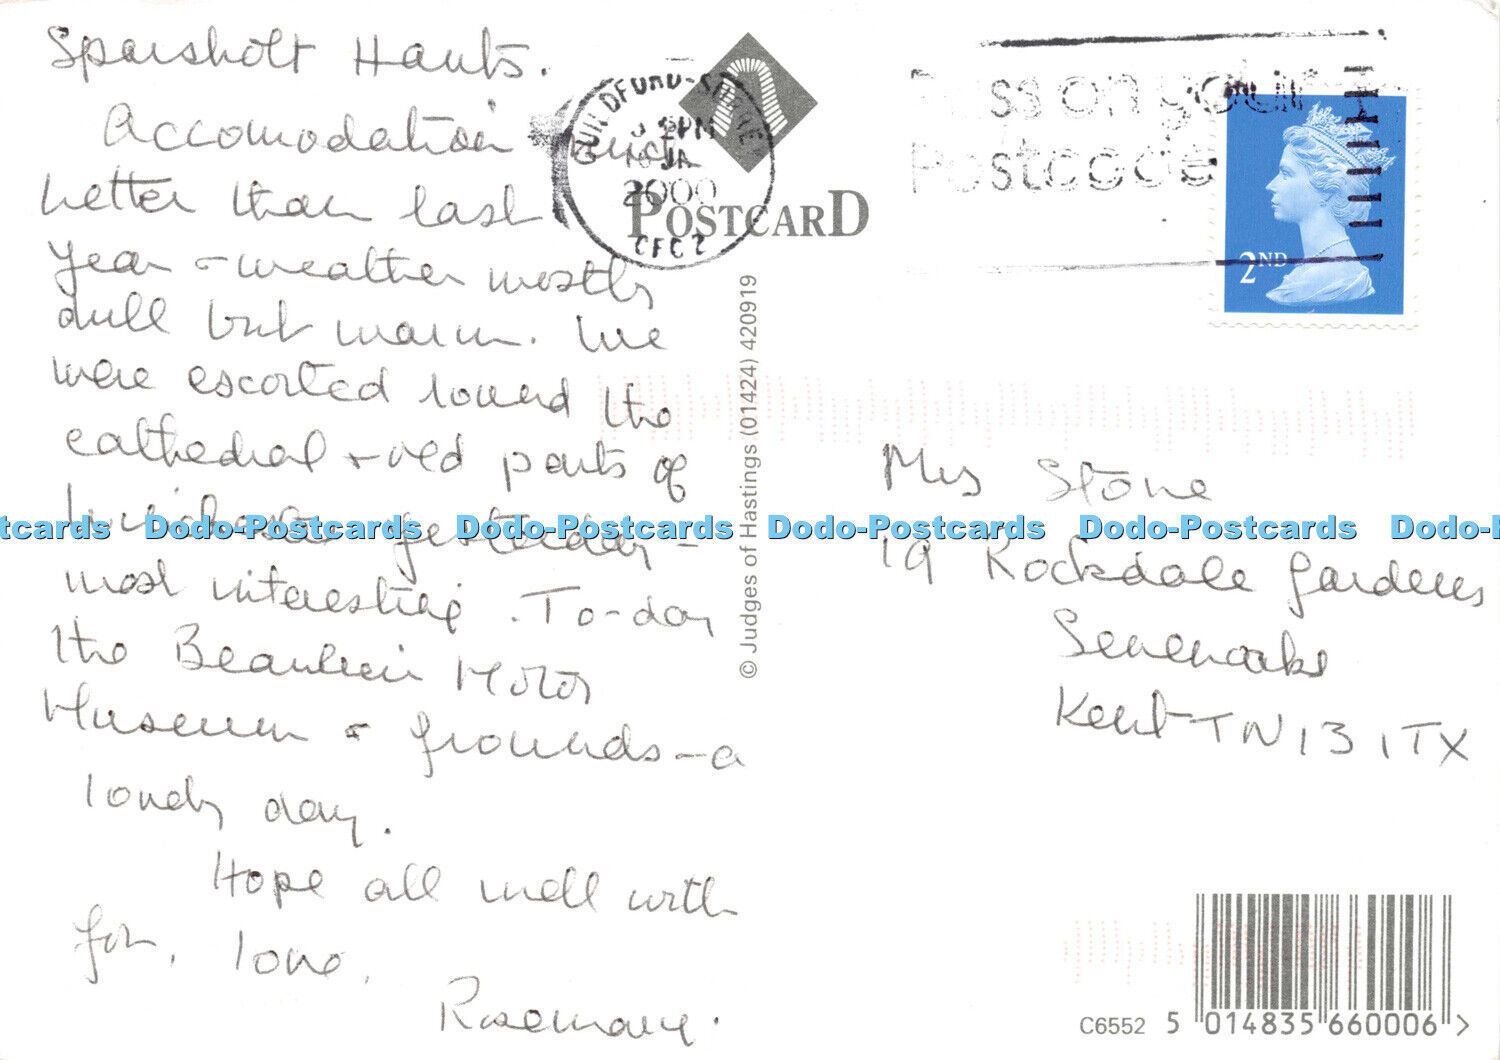 Sparsholt Hants.
Accomodation much
better than last
year - weather mostly
dull but warm. We
were escorted round the
cathedral + old parts of
Winchester yesterday -
most interesting. To-day
the Beaulieu Motor
Museum + grounds - a
lovely day.
Hope all well with
you, love,
Rosemary.
POSTCARD
GUILDFORD-SURREY
PM
JA
2000
CFC 2
Pass on your
Postcode
2ND
© Judges of Hastings (01424) 420919
Mrs Stone
19 Rockdale Gardens
Sevenoaks
Kent TN13 1TX
Dodo-Postcards Dodo-Postcards Dodo-Postcards Dodo-Postcards
C6552 5 014835 660006 >